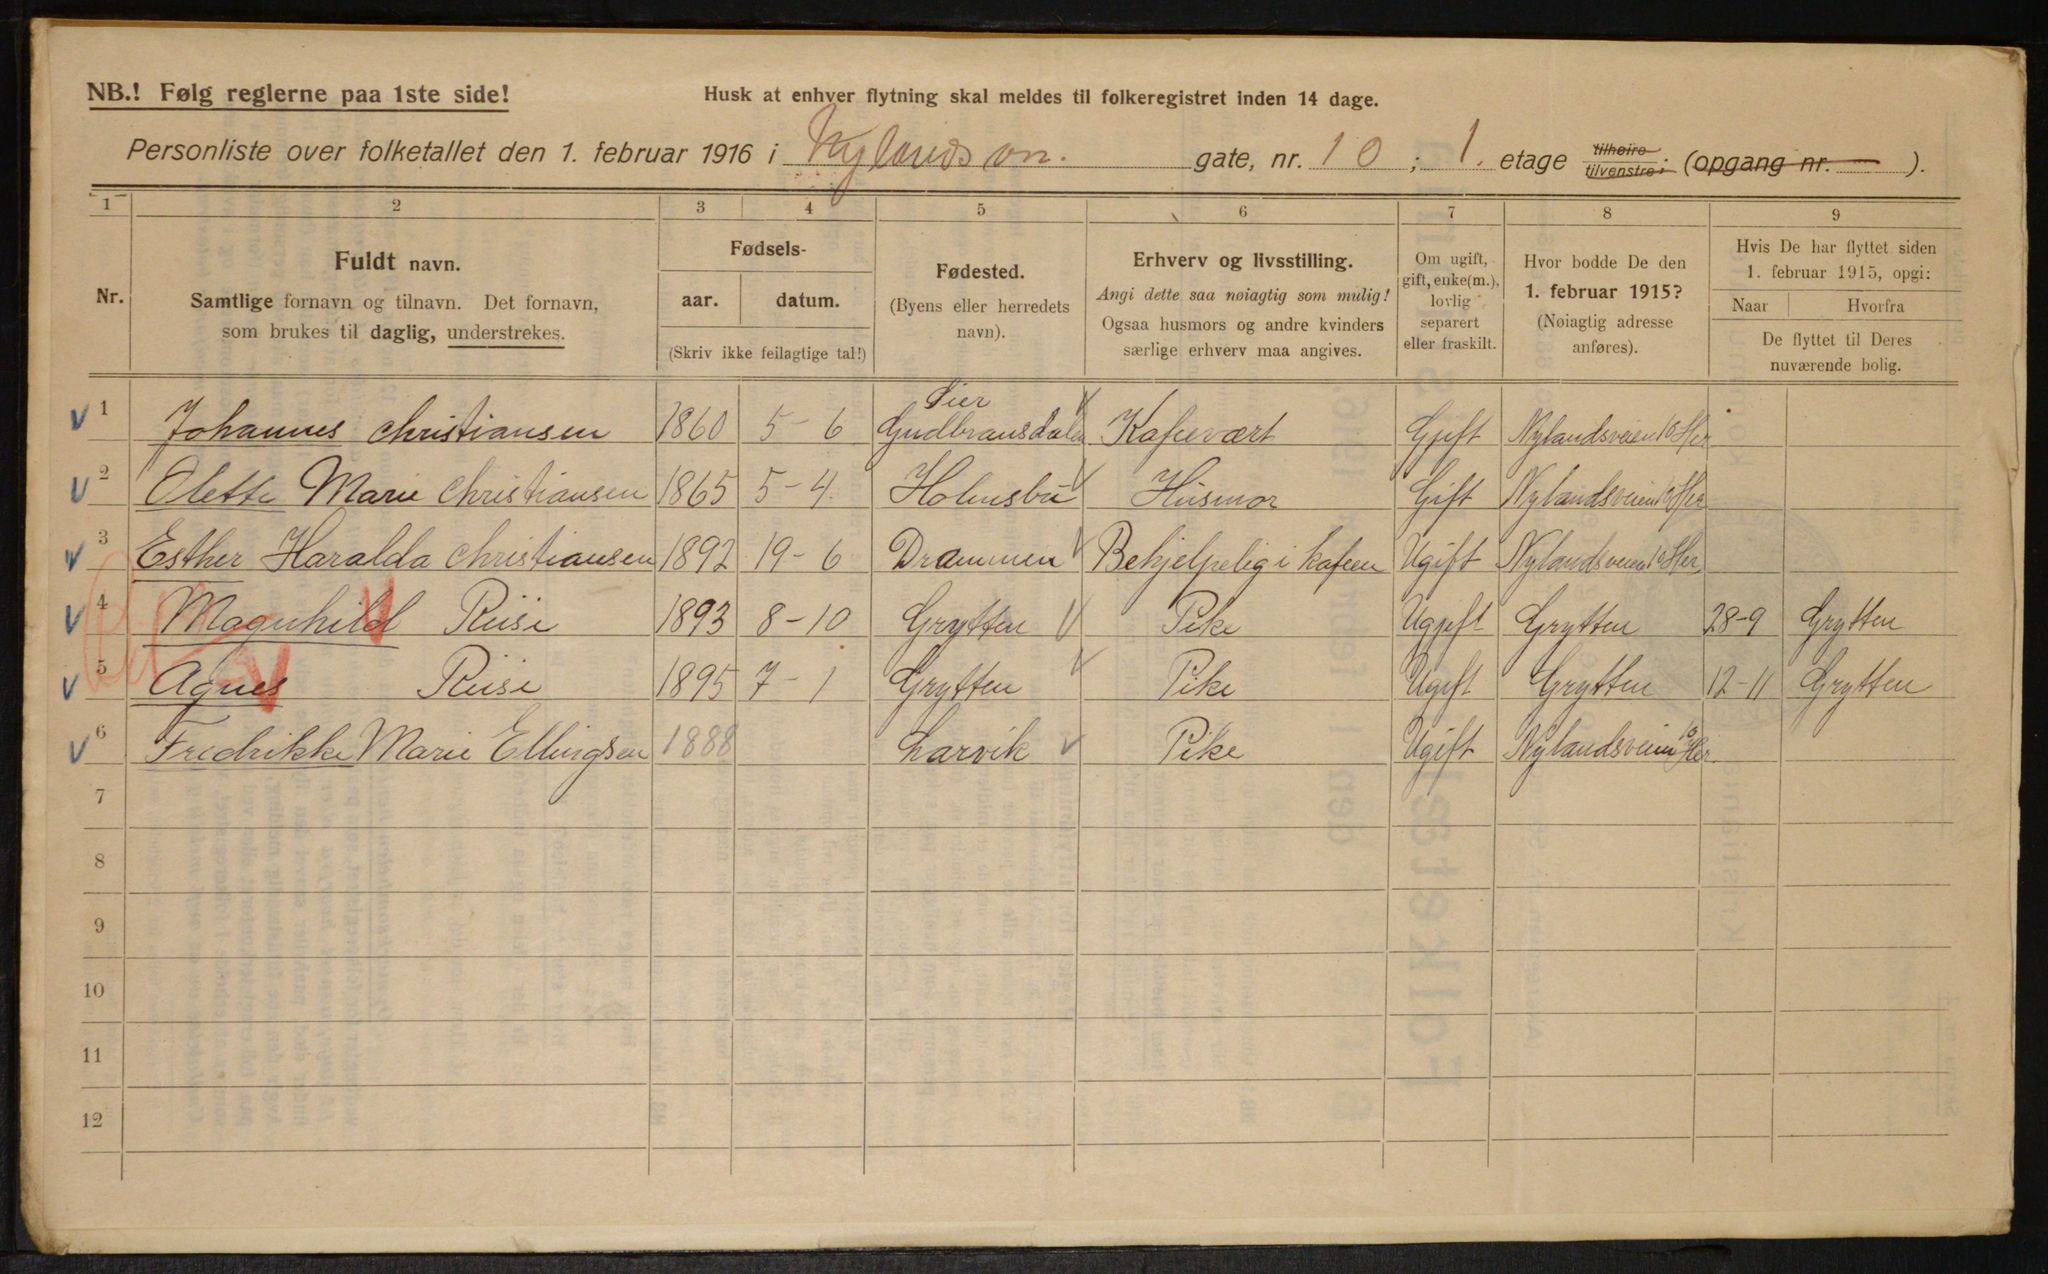 NB.! Følg reglerne paa 1ste side!
Husk at enhver flytning skal meldes til folkeregistret inden 14 dage.
Personliste over folketallet den 1. februar 1916 i Nylandsvn. gate, nr. 10 ; 1. etage tilhøire tilvenstre; (opgang nr. ).
1 2 3 4 5 6 7 8 9
Nr.
Fuldt navn.
Samtlige fornavn og tilnavn. Det fornavn,
som brukes til daglig, understrekes.
Fødsels-
aar. datum.
(Skriv ikke feilagtige tal!)
Fødested.
(Byens eller herredets
navn).
Erhverv og livsstilling.
Angi dette saa nøiagtig som mulig!
Ogsaa husmors og andre kvinders
særlige erhverv maa angives.
Om ugift,
gift, enke(m.),
lovlig
separert
eller fraskilt.
Hvor bodde De den
1. februar 1915?
(Nøiagtig adresse
anføres).
Hvis De har flyttet siden
1. februar 1915, opgi:
Naar Hvorfra
De flyttet til Deres
nuværende bolig.
1 Johannes Christiansen 1860 5-6 Gudbransdalen Kafevært Gift Nylandsveien 10 Her
2 Olette Marie Christiansen 1865 5-4. Holmsbu Husmor Gift Nylandsveien 10 Her
3 Esther Haralda Christiansen 1892 19-6 Drammen Behjelpelig i kafeen Ugift Nylandsveien 10 Her
4 Magnhild Riise 1893 8-10 Grytten Pike Ugift Grytten 28-9 Grytten
5 Agnes Riise 1895 7-1 Grytten Pike Ugift Grytten 12-11 Grytten
6 Fredrikke Marie Ellingsen 1888 Larvik Pike Ugift Nylandsveien 10 Her.
7
8
9
10
11
12